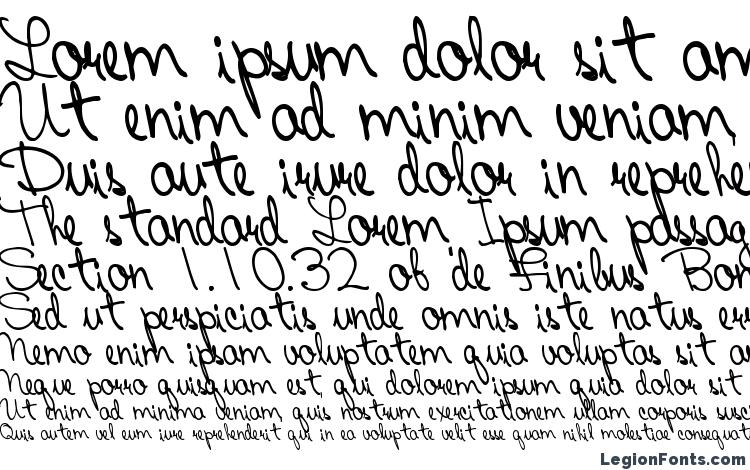 Lorem ipsum dolor sit am
Ut enim ad minim veniam,
Duis aute irure dolor in reprehe
The standard Lorem Ipsum passag
Section 1.10.32 of de Finibus Bon
Sed ut perspiciatis unde omnis iste natus err
Nemo enim ipsam voluptatem quia voluptas sit as
Neque porro quisquam est, qui dolorem ipsum quia dolor sit
Ut enim ad minima veniam, quis nostrum exercitationem ullam corporis susci
Quis autem vel eum iure reprehenderit qui in ea voluptate velit esse quam nihil molestiae consequat
LegionFonts.com